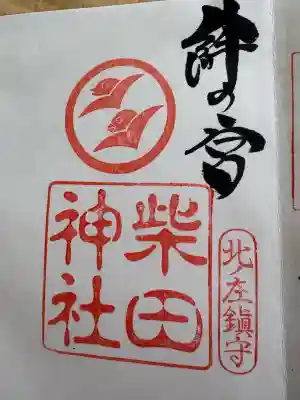 絆の宮
柴田
神社
北ノ庄鎮守